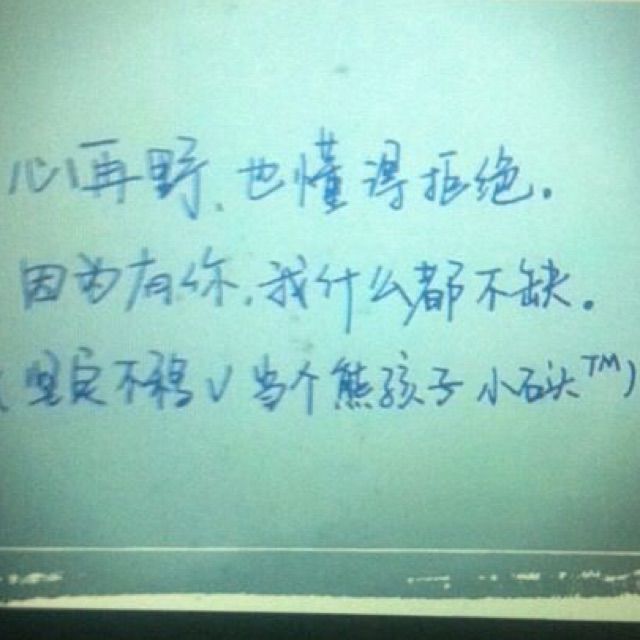 心再野,也懂得拒绝.
因为有你,我什么都不缺.
(坚定不移√当个熊孩子 小石头™)